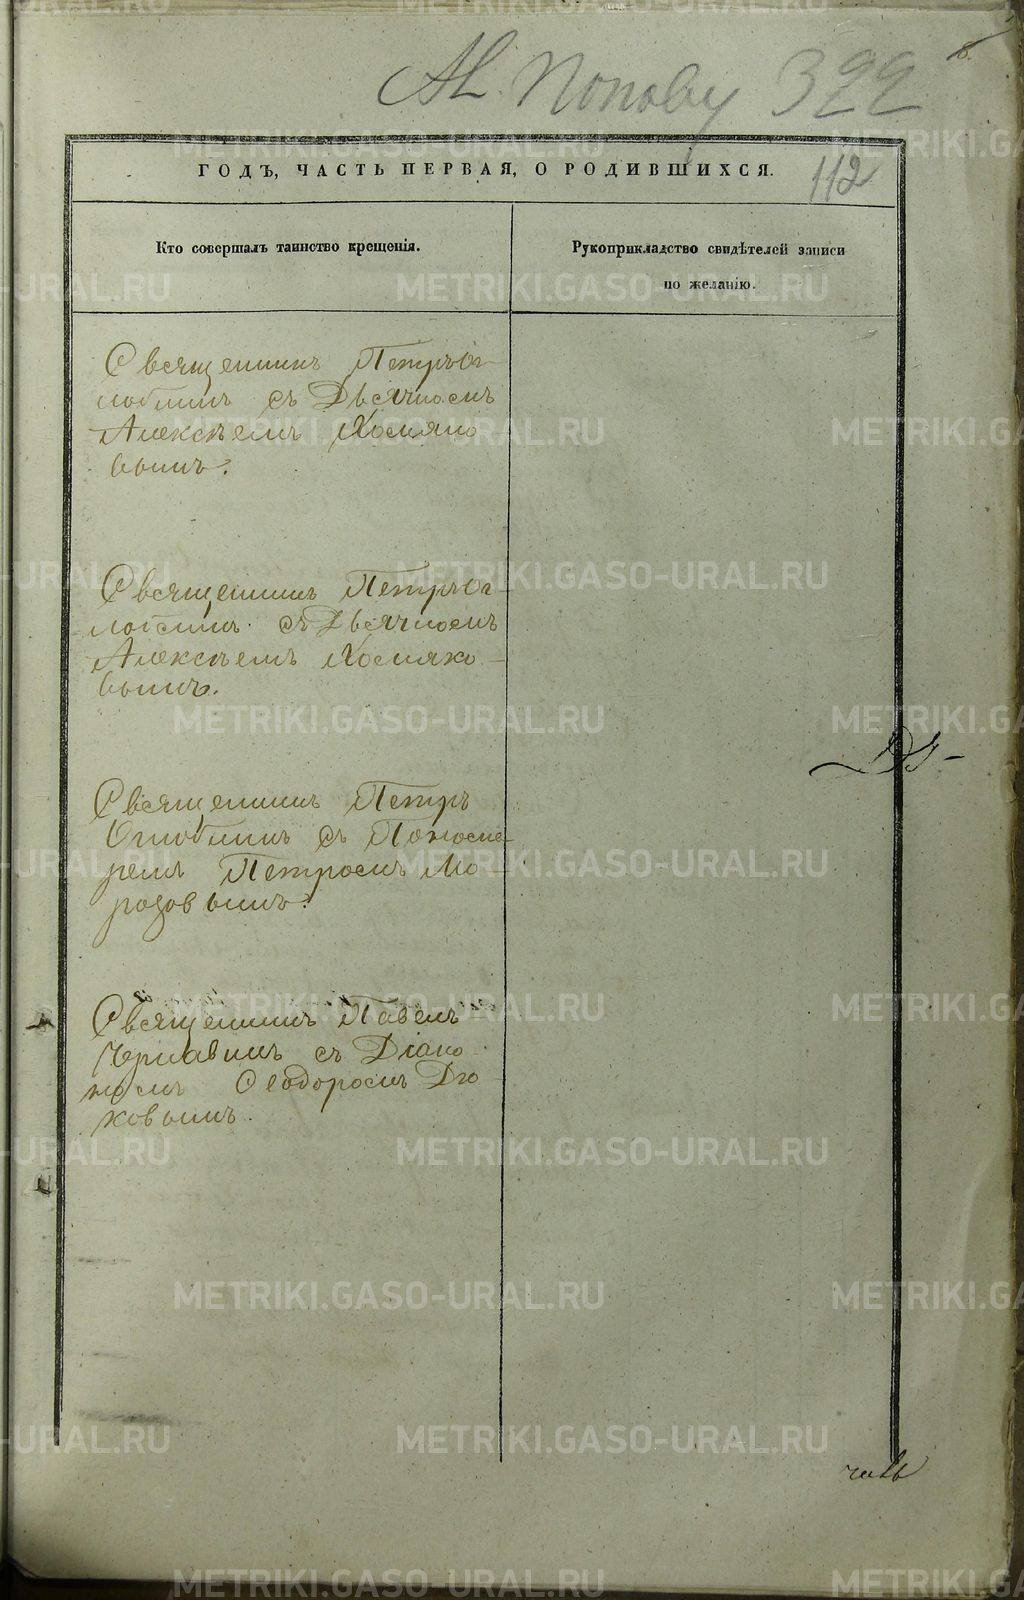 322
ГОДЪ, ЧАСТЬ ПЕРВАЯ, О РОДИВШИХСЯ.
112
Кто совершалъ таинство крещенія.
Рукоприкладство свидѣтелей записи
по желанію.
Священникъ Петръ Ог-
лоблинъ съ Дьячкомъ
Алексѣемъ Хомяко-
вымъ.
Священникъ Петръ Ог-
лоблинъ съ Дьячкомъ
Алексѣемъ Хомяко-
вымъ.
Священникъ Петръ
Оглоблинъ съ Пономa-
ремъ Петромъ Мо-
розовымъ.
Священникъ Павелъ
Чернавинъ съ Діако-
номъ Ѳеодоромъ Дю-
ковымъ.
METRIKI.GASO-URAL.RU